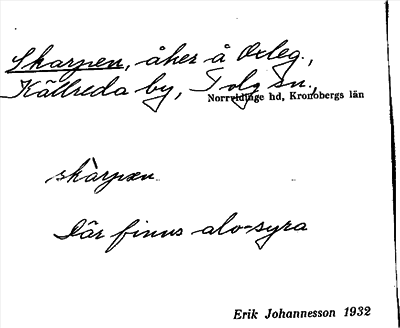 Skarpen, åker å Oxleg.,
Källreda by, Tolg sn.,
Norrvidinge hd, Kronobergs län
skàrpæn
Där finns alv-syra
Erik Johannesson 1932